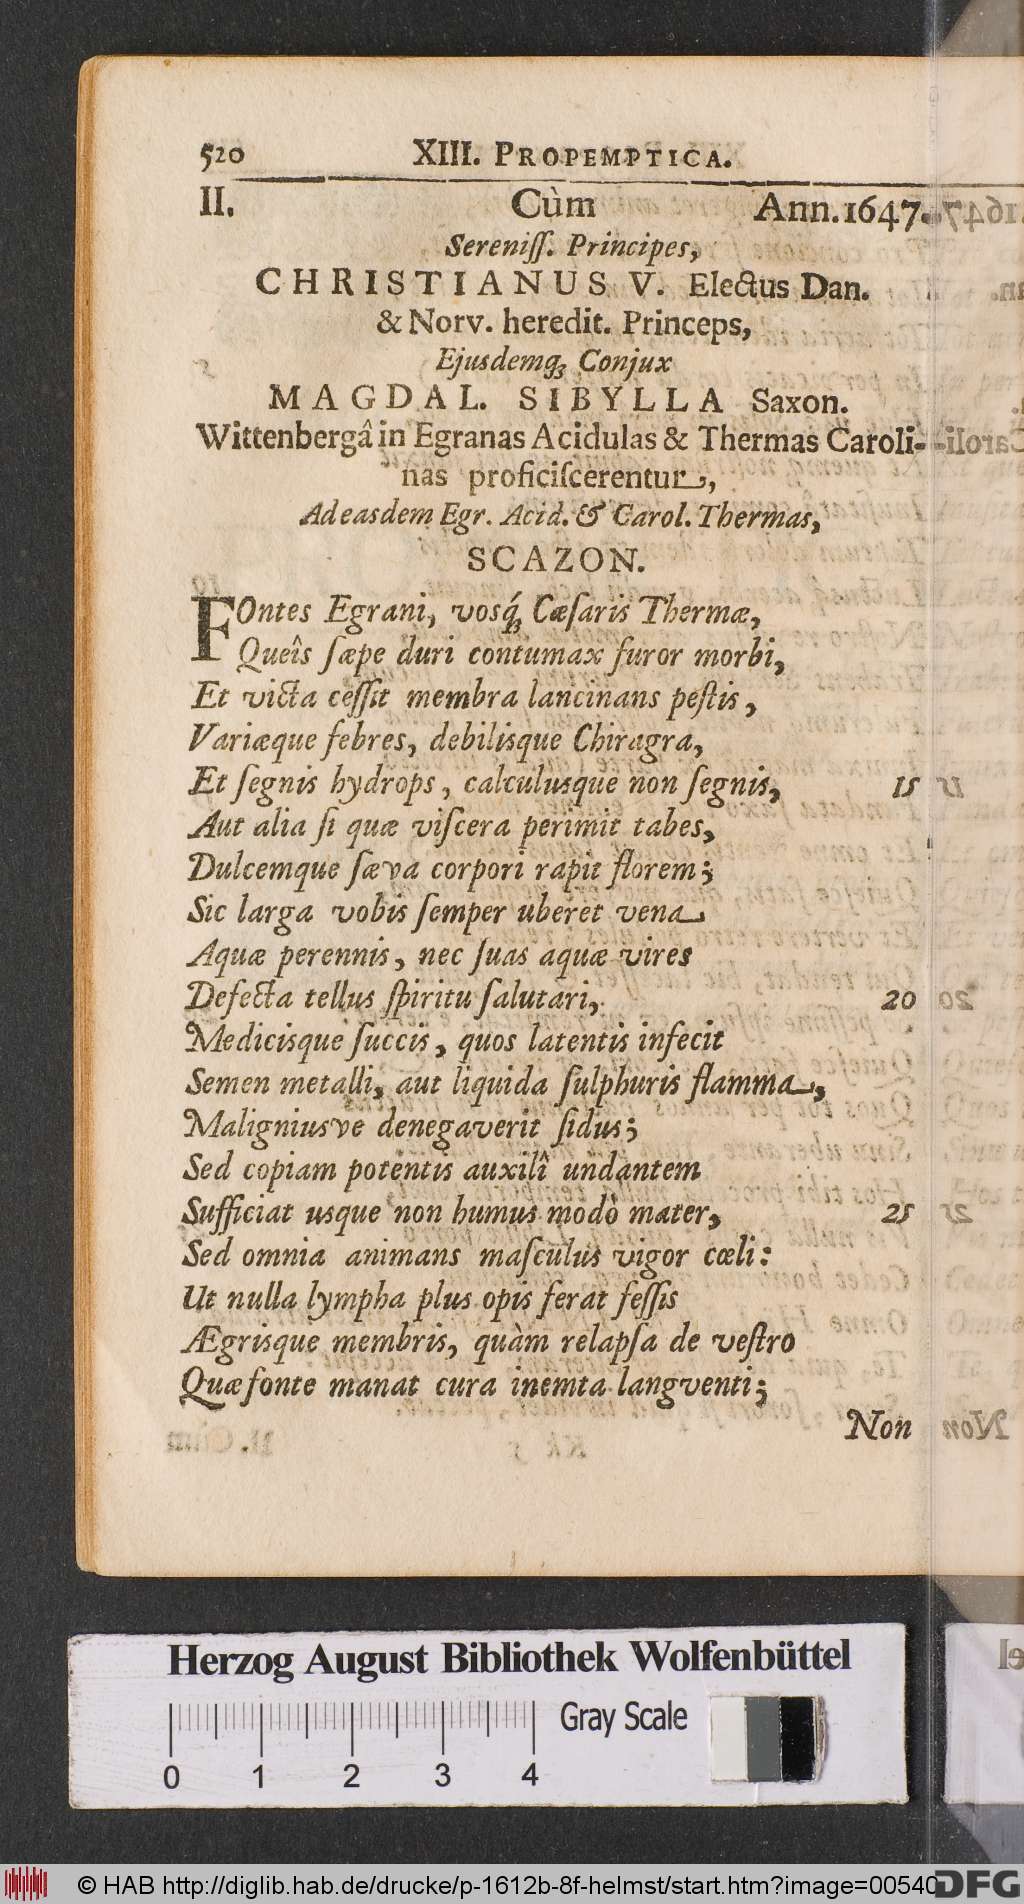 520 XIII. PROPEMPTICA.
II. Cùm Ann. 1647.
Sereniſſ. Principes,
CHRISTIANUS V. Electus Dan.
& Norv. heredit. Princeps,
Ejusdemq́ꝫ Conjux
MAGDAL. SIBYLLA Saxon.
Wittenbergâ in Egranas Acidulas & Thermas Caroli-
nas proficiſcerentur,
Ad easdem Egr. Acid. & Carol. Thermas,
SCAZON.
FOntes Egrani, vosq́ꝫ Cæſaris Thermæ,
Queîs ſæpe duri contumax furor morbi,
Et victa ceſſit membra lancinans peſtis,
Variæque febres, debilisque Chiragra,
Et ſegnis hydrops, calculusque non ſegnis, 15
Aut alia ſi quæ viſcera perimit tabes,
Dulcemque ſæva corpori rapit florem;
Sic larga vobis ſemper uberet vena
Aquæ perennis, nec ſuas aquæ vires
Defecta tellus ſpiritu ſalutari, 20
Medicisque ſuccis, quos latentis infecit
Semen metalli, aut liquida ſulphuris flamma,
Maligniusve denegaverit ſidus;
Sed copiam potentis auxilî undantem
Sufficiat usque non humus modò mater, 25
Sed omnia animans maſculus vigor cœli:
Ut nulla lympha plus opis ferat feſſis
Ægrisque membris, quàm relapſa de veſtro
Quæ fonte manat cura inemta langventi;
Non
Herzog August Bibliothek Wolfenbüttel
Gray Scale
0 1 2 3 4
© HAB http://diglib.hab.de/drucke/p-1612b-8f-helmst/start.htm?image=00540
DFG